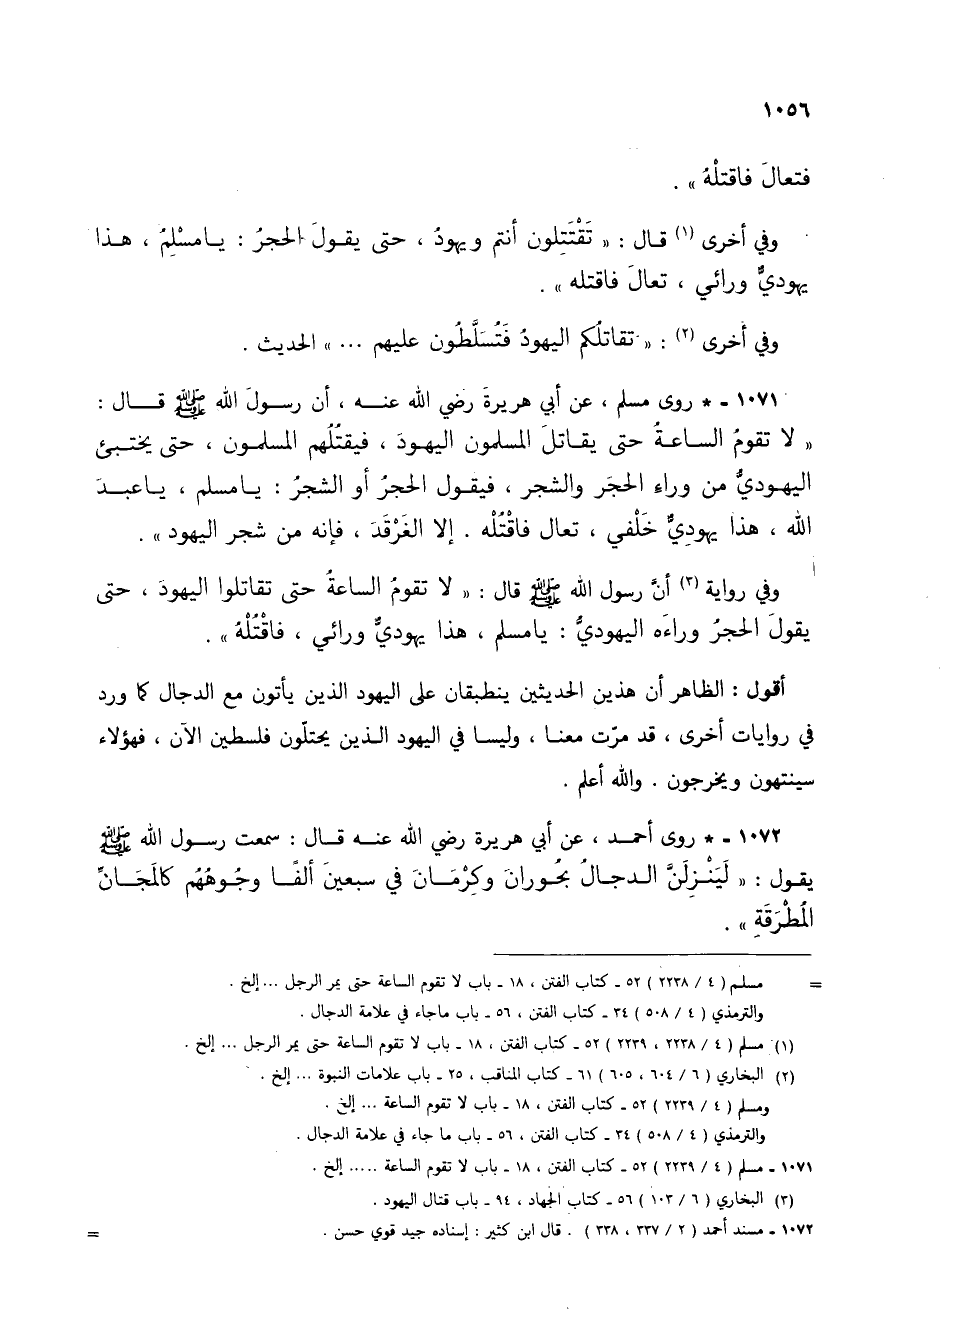 ١٠٥٦
فتعالَ فاقتلْهُ » .
وفي أخرى (١) قال : « تَقْتَتِلون أنتم ويهودُ ، حتى يقولَ الحجرُ : يـامسْلِمُ ، هـذا
يهوديٌّ ورائي ، تعالَ فاقتله » .
وفي أخرى (٢) : « تقاتلُكم اليهودُ فَتُسَلَّطُون عليهم ... » الحديث .
١٠٧١ - * روى مسلم ، عن أبي هريرةَ رضي الله عنـه ، أن رسـولَ الله ﷺ قـال :
« لا تقومُ الساعـةُ حتى يقاتلَ المسلمون اليهودَ ، فيقتُلُهم المسلمـون ، حتى يختبـئَ
اليهـوديُّ من وراءِ الحجَرِ والشجرِ ، فيقـول الحجرُ أو الشجرُ : يـامسلم ، يـاعبـدَ
الله ، هذا يهوديٌّ خَلْفي ، تعال فاقْتُلْه . إلا الغَرْقَدَ ، فإنه من شجر اليهود » .
وفي رواية (٣) أنَّ رسول الله ﷺ قال : « لا تقومُ الساعةُ حتى تقاتلوا اليهودَ ، حتى
يقولَ الحجرُ وراءَه اليهوديُّ : يامسلم ، هذا يهوديٌّ ورائي ، فاقْتُلْهُ » .
أقول : الظاهر أن هذين الحديثين ينطبقان على اليهود الذين يأتون مع الدجال كما ورد
في روايات أخرى ، قد مرّت معنـا ، وليسـا في اليهود الـذين يحتلّون فلسطين الآن ، فهؤلاء
سينتهون ويخرجون . والله أعلم .
١٠٧٢ - * روى أحمـد ، عن أبي هريرة رضي الله عنـه قـال : سمعت رسـول الله ﷺ
يقـول : « لَيَنْزِلَنَّ الـدجـالُ بحُـوران وكرْمَـانَ في سبعينَ ألفًـا وجُـوهُهُم كالمَجَـانِّ
المُطْرَقَةِ » .
= مسلم ( ٤ / ٢٢٣٨ ) ٥٢ - كتاب الفتن ، ١٨ - باب لا تقوم الساعة حتى يمر الرجل ... إلخ .
والترمذي ( ٤ / ٥٠٨ ) ٣٤ - كتاب الفتن ، ٥٦ - باب ماجاء في علامة الدجال .
(١) مسلم ( ٤ / ٢٢٣٨ ، ٢٢٣٩ ) ٥٢ - كتاب الفتن ، ١٨ - باب لا تقوم الساعة حتى يمر الرجل ... إلخ .
(٢) البخاري ( ٦ / ٦٠٤ ، ٦٠٥ ) ٦١ - كتاب المناقب ، ٢٥ - باب علامات النبوة ... إلخ .
ومسلم ( ٤ / ٢٢٣٩ ) ٥٢ - كتاب الفتن ، ١٨ - باب لا تقوم الساعة ... إلخ .
والترمذي ( ٤ / ٥٠٨ ) ٣٤ - كتاب الفتن ، ٥٦ - باب ما جاء في علامة الدجال .
١٠٧١ - مسلم ( ٤ / ٢٢٣٩ ) ٥٢ - كتاب الفتن ، ١٨ - باب لا تقوم الساعة ..... إلخ .
(٣) البخاري ( ٦ / ١٠٣ ) ٥٦ - كتاب الجهاد ، ٩٤ - باب قتال اليهود .
١٠٧٢ - مسند أحمد ( ٢ / ٣٣٧ ، ٣٣٨ ) . قال ابن كثير : إسناده جيد قوي حسن . =